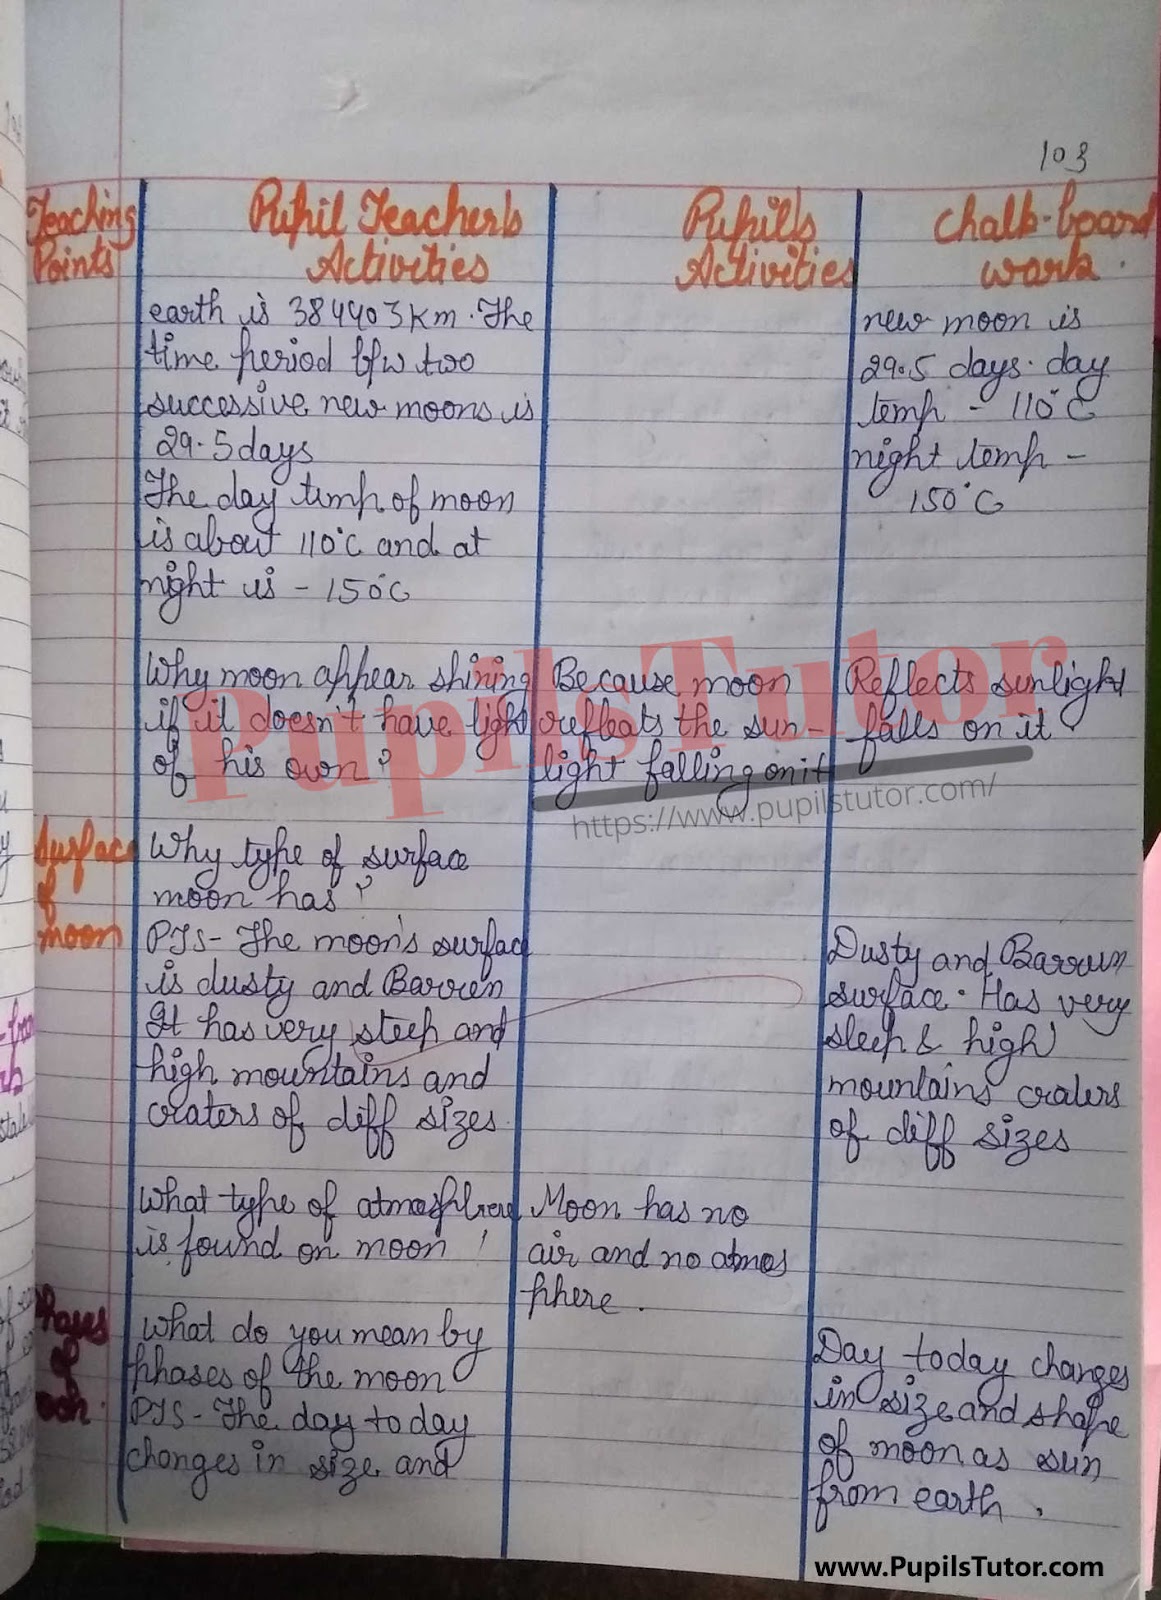 103
Teaching
Points
Pupil Teacher's
Activities
Pupil's
Activities
Chalk-board
work.
earth is 384403 Km. The
time period b/w two
successive new moons is
29.5 days
The day temp of moon
is about 110°C and at
night is - 150°C
new moon is
29.5 days. day
temp - 110°C
night temp -
150°C
Why moon appear shining
if it doesn't have light
of his own?
Because moon
reflects the sun-
light falling on it
Reflects sunlight
falls on it
Pupils Tutor
https://www.pupilstutor.com/
Surface
of
moon
Why type of surface
moon has?
PTS- The moon's surface
is dusty and Barren
It has very steep and
high mountains and
craters of diff sizes.
Dusty and Barren
surface. Has very
steep & high
mountains craters
of diff sizes
What type of atmosphere
is found on moon
Moon has no
air and no atmos
phere.
Phases
of
What do you mean by
phases of the moon
PTS- The day to day
changes in size and
Day today changes
in size and shape
of moon as sun
from earth.
www.PupilsTutor.com